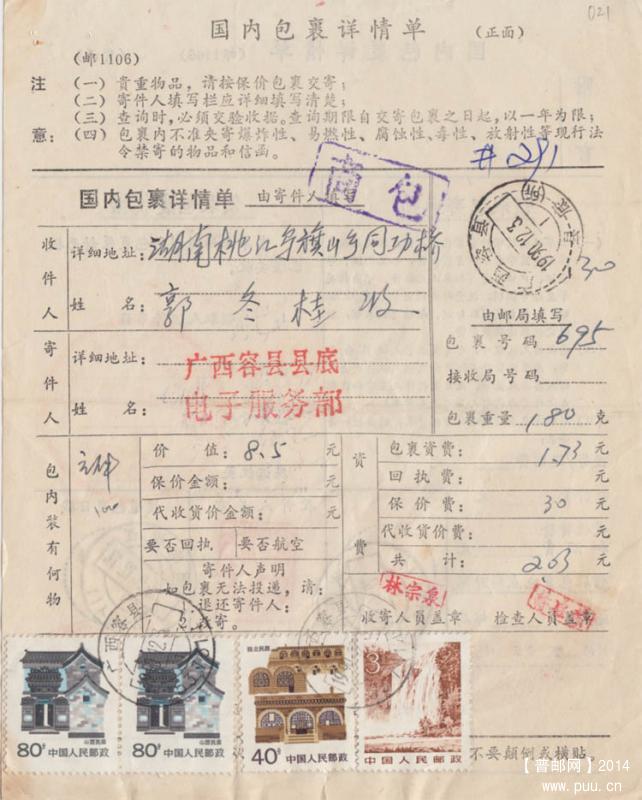 021
国内包裹详情单 (正面)
(邮1106)
注意:
(一) 贵重物品,请按保价包裹交寄;
(二) 寄件人填写栏应详细填写清楚;
(三) 查询时,必须交验收据。查询期限自交寄包裹之日起,以一年为限;
(四) 包裹内不准夹寄爆炸性、易燃性、腐蚀性、毒性、放射性等现行法
令禁寄的物品和信函。
#291
商包
国内包裹详情单 由寄件人填写
广西容县
1990.12.3
收件人
详细地址:湖南桃江县旗山乡同功桥
姓名:郭冬桂收
由邮局填写
包裹号码 695
接收局号码
包裹重量 180 克
寄件人
详细地址:广西容县县底
姓名:电子服务部
包内装有何物
价值:8.5元
保价金额:元
代收货价金额:元
要否回执 要否航空
寄件人声明
如包裹无法投递,请:
退还寄件人;
资费
包裹资费:1.73元
回执费:元
保价费:30元
代收货价费:元
共计:2.03元
林宗泉
收寄人员盖章 检查人员盖章
80分 中国人民邮政 山西民居
80分 中国人民邮政 山西民居
陕北民居
40分 中国人民邮政
3
中国人民邮政
不要颠倒或横贴。
【普邮网】2014
www.puu.cn